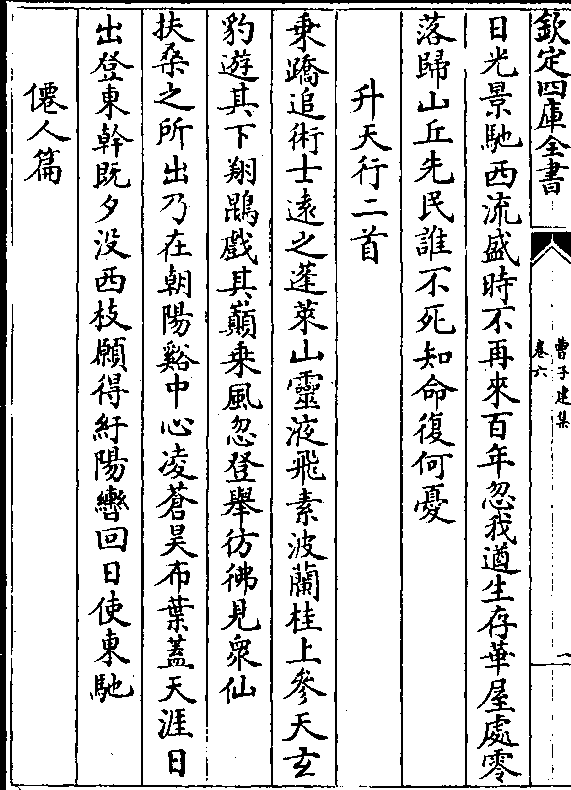 欽定四庫全書
曹子建集
卷六
日光景馳西流盛時不再來百年忽我遒生存華屋處零
落歸山丘先民誰不死知命復何憂
升天行二首
乘蹻追術士遠之蓬萊山靈液飛素波蘭桂上參天玄
豹遊其下翔鵾戲其巔乘風忽登舉彷彿見衆仙
扶桑之所出乃在朝陽谿中心凌蒼昊布葉蓋天涯日
出登東幹既夕没西枝願得紆陽轡回日使東馳
僊人篇